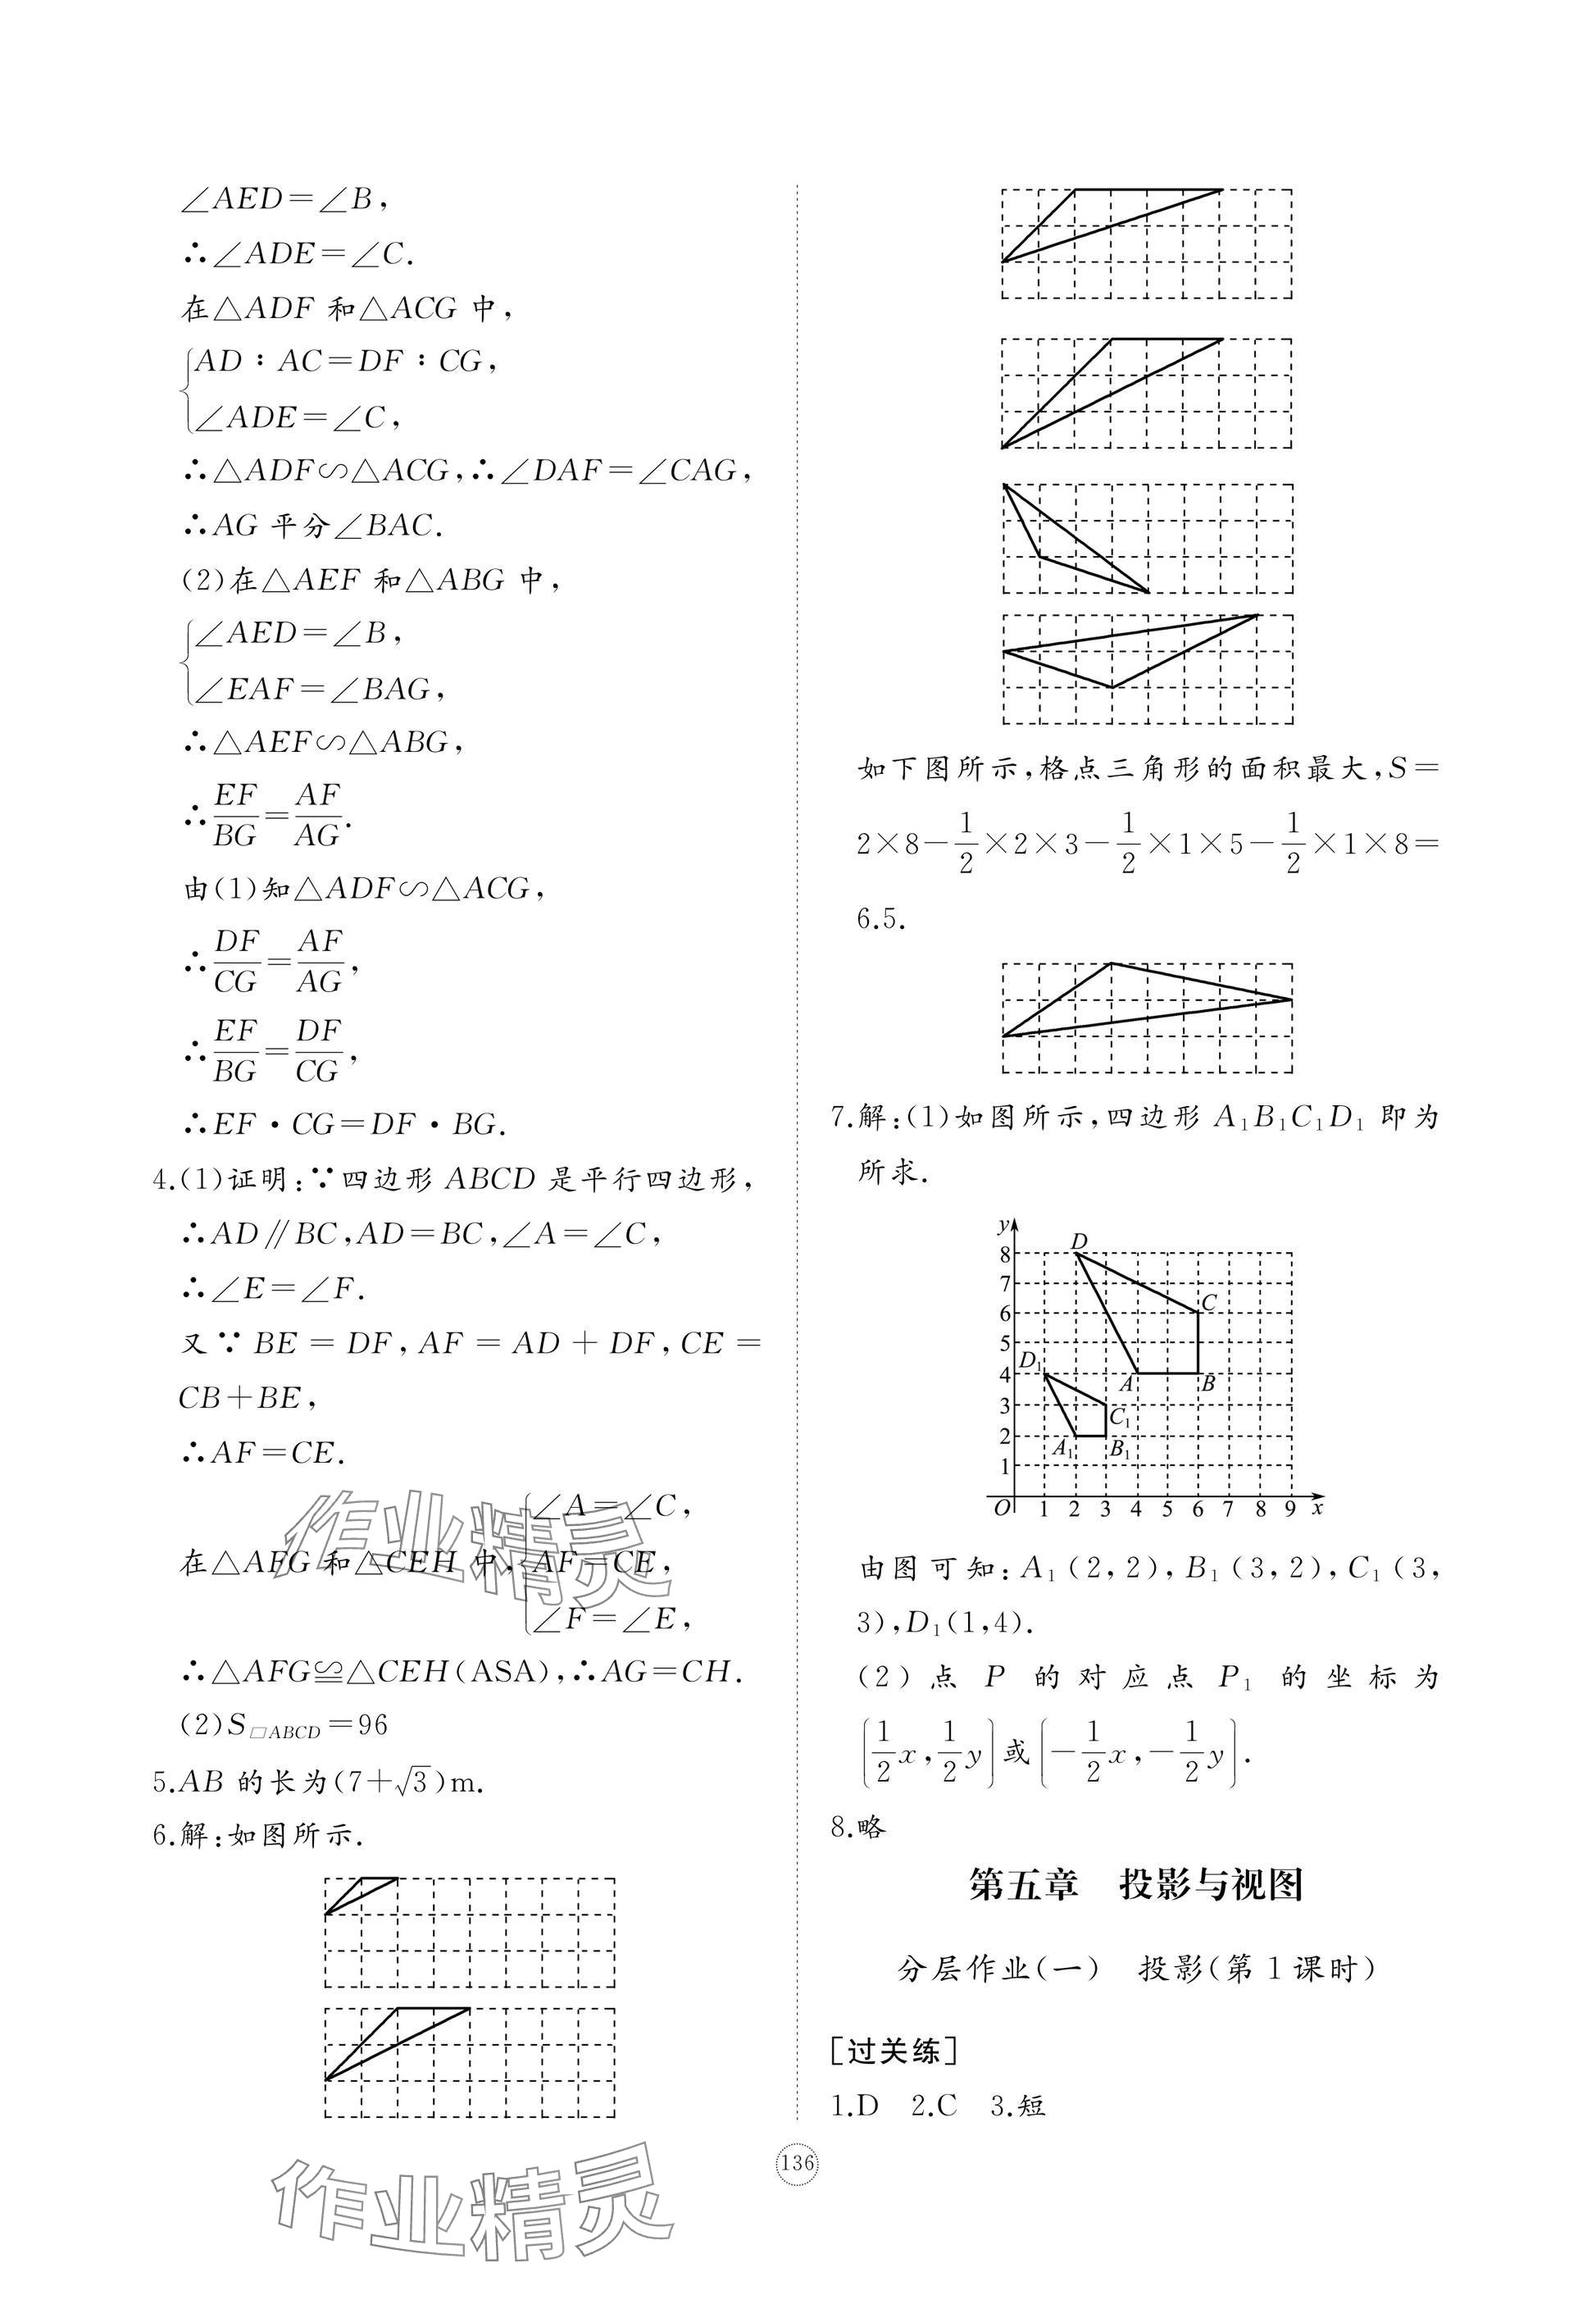 ∠AED=∠B,
∴∠ADE=∠C.
在△ADF 和△ACG 中,
{AD∶AC=DF∶CG,
∠ADE=∠C,
∴△ADF∽△ACG,∴∠DAF=∠CAG,
∴AG 平分∠BAC.
(2)在△AEF 和△ABG 中,
{∠AED=∠B,
∠EAF=∠BAG,
∴△AEF∽△ABG,
∴EF/BG=AF/AG.
由(1)知△ADF∽△ACG,
∴DF/CG=AF/AG,
∴EF/BG=DF/CG,
∴EF·CG=DF·BG.
4.(1)证明:∵四边形 ABCD 是平行四边形,
∴AD∥BC,AD=BC,∠A=∠C,
∴∠E=∠F.
又∵ BE = DF, AF = AD + DF, CE =
CB+BE,
∴AF=CE.
在△AFG 和△CEH 中,{∠A=∠C,
AF=CE,
∠F=∠E,
∴△AFG≌△CEH(ASA),∴AG=CH.
(2)S▱ABCD=96
5.AB 的长为(7+√3)m.
6.解:如图所示.
如下图所示,格点三角形的面积最大,S=
2×8-1/2×2×3-1/2×1×5-1/2×1×8=
6.5.
7.解:(1)如图所示,四边形 A₁B₁C₁D₁ 即为
所求.
y
8 D
7
6 C
5
4 D₁ A B
3 C₁
2 A₁ B₁
1
O 1 2 3 4 5 6 7 8 9 x
由图可知: A₁(2,2), B₁(3,2), C₁(3,
3),D₁(1,4).
(2)点 P 的对应点 P₁ 的坐标为
(1/2x,1/2y)或(-1/2x,-1/2y).
8.略
第五章 投影与视图
分层作业(一) 投影(第1课时)
[过关练]
1.D 2.C 3.短
136
作业精灵
作业精灵